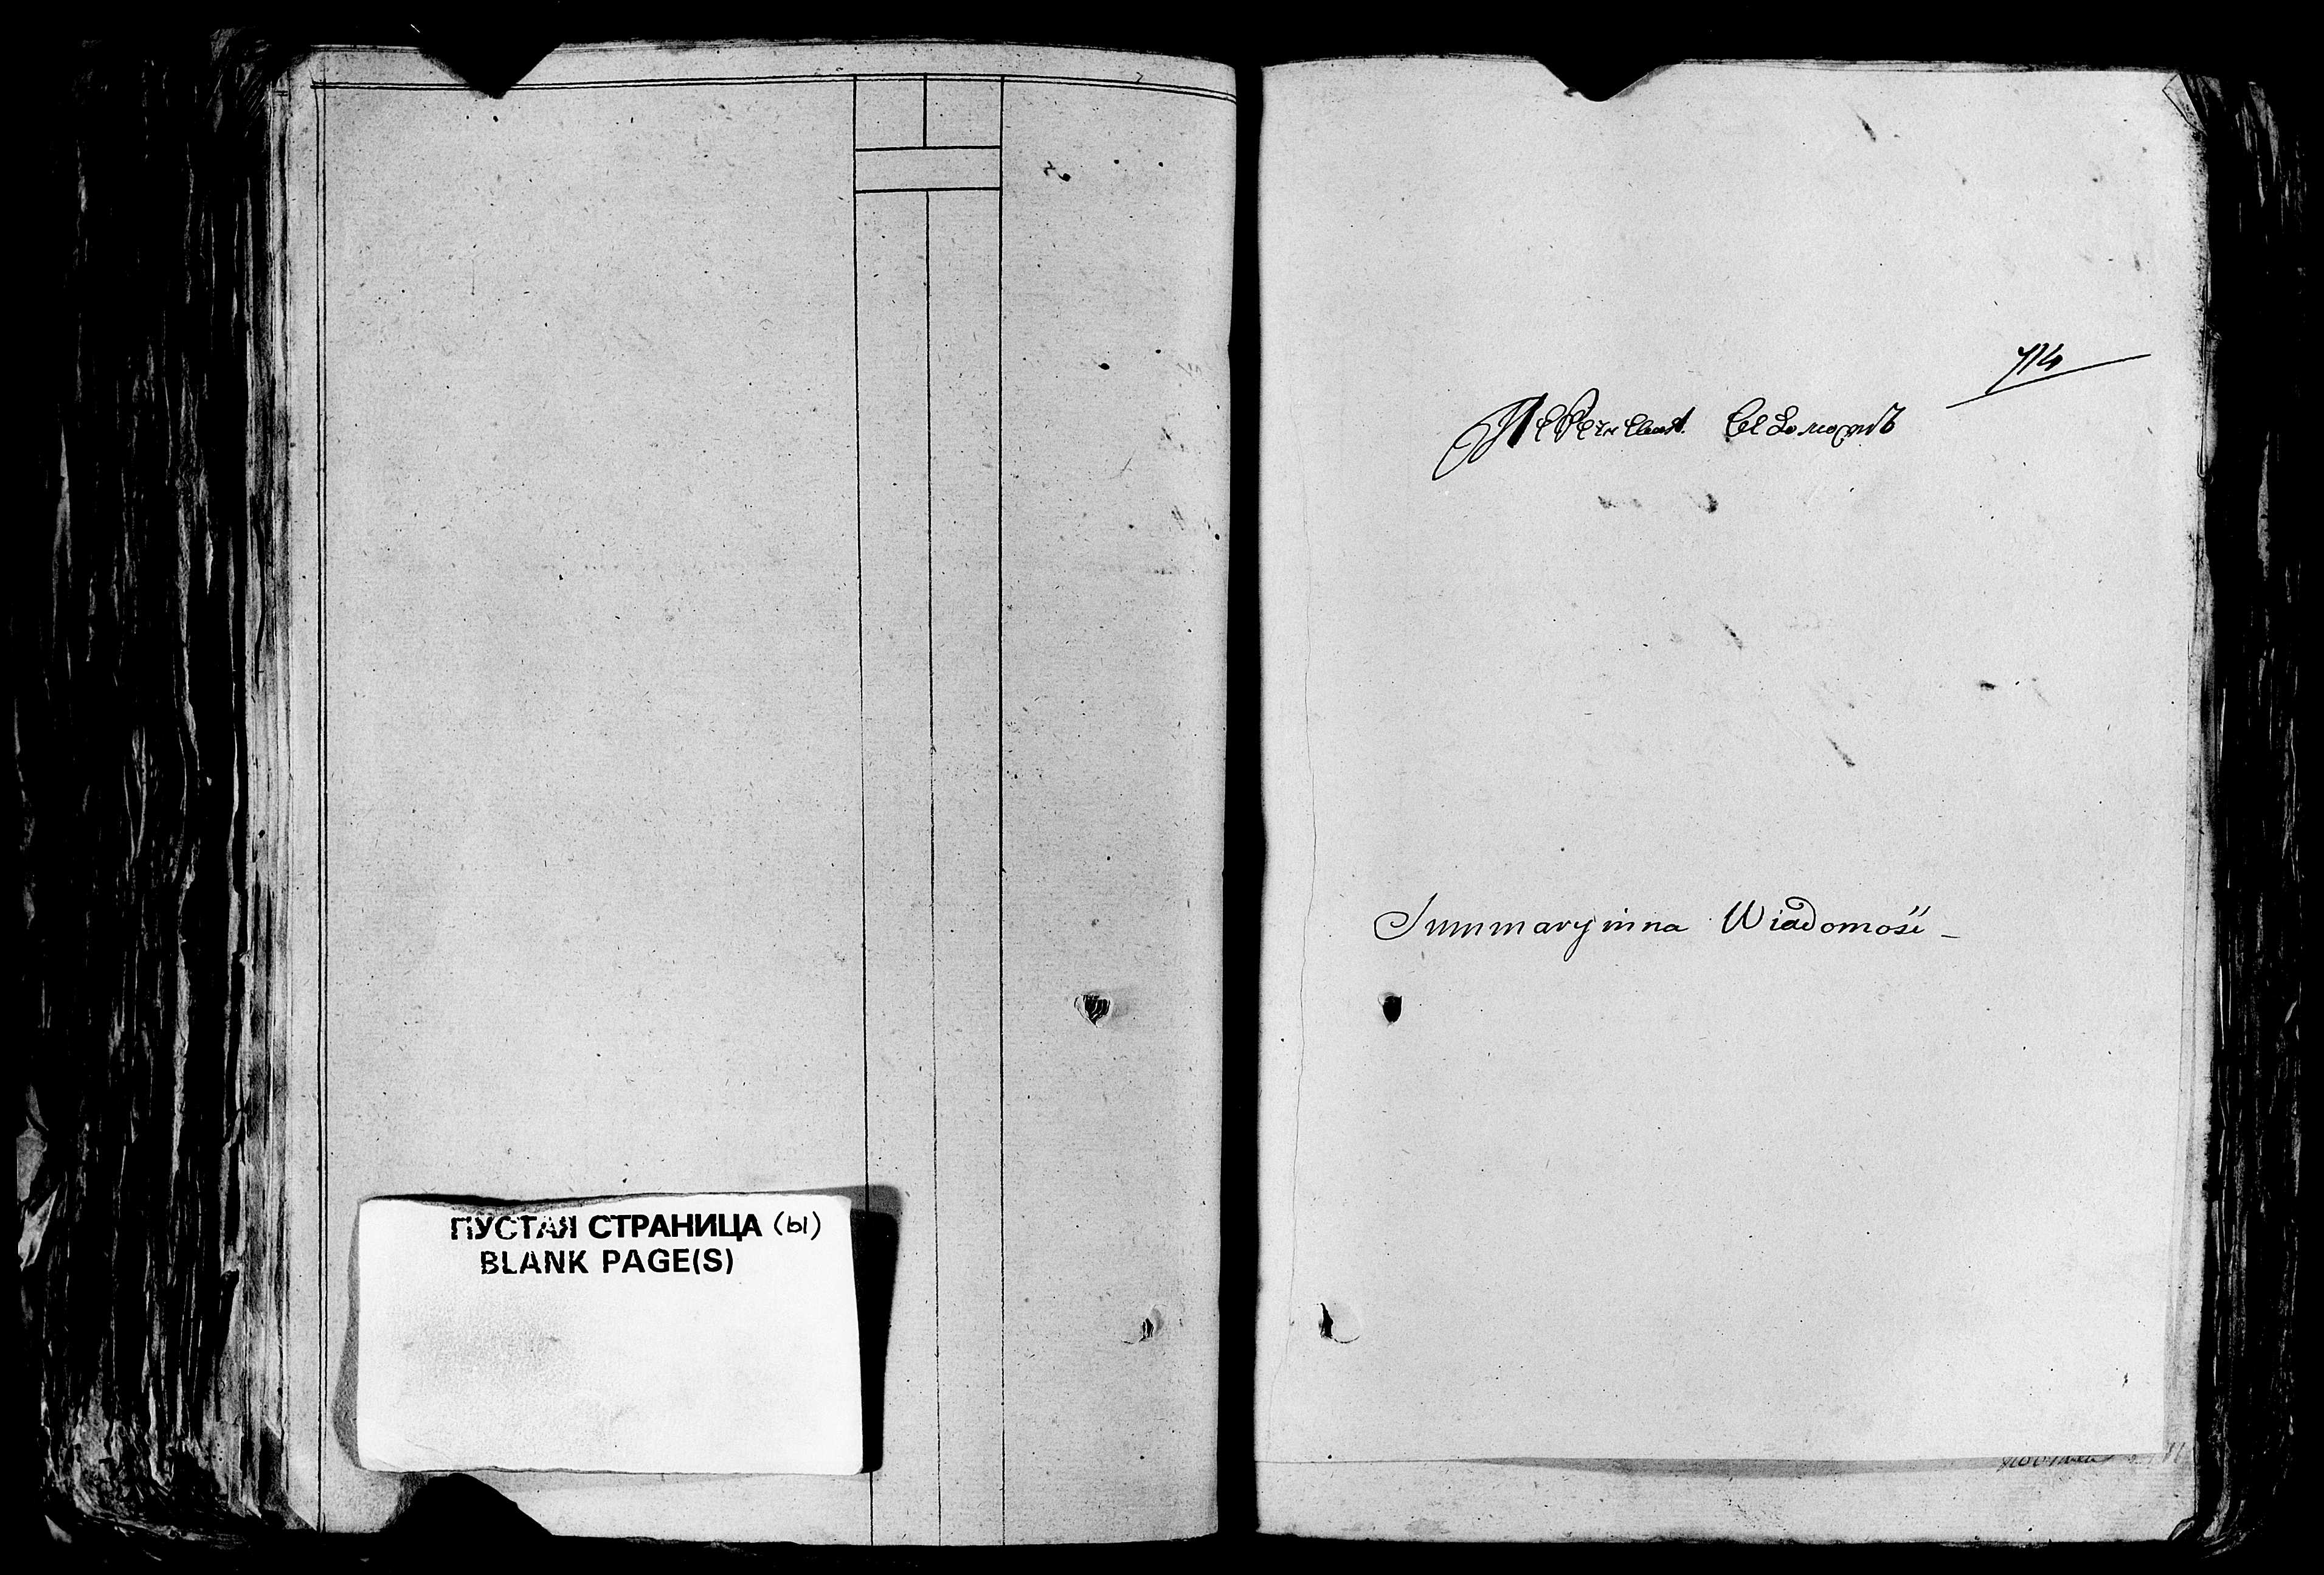 ПУСТАЯ СТРАНИЦА (ы)
BLANK PAGE(S)
714
Ведомость
Summaryinna Wiadomość -